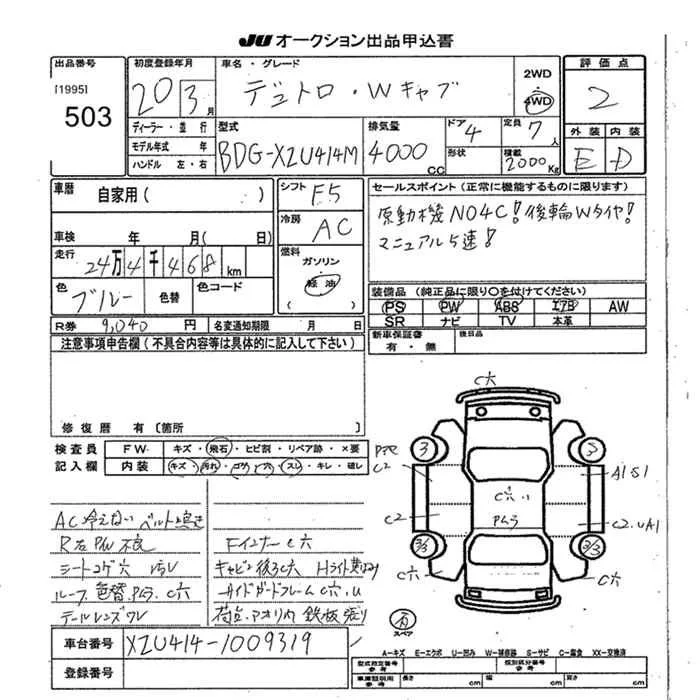 JU オークション出品申込書
出品番号
[1995]
503
初度登録年月
20 3月
車名・グレード
デュトロ・Wキャブ
2WD
4WD
評価点
2
ディーラー・並行
モデル年式 年
ハンドル 左・右
型式
BDG-XZU414M
排気量
4000 CC
ドア 4
形状
定員 7人
積載 2000 Kg
外装 内装
E D
車歴
自家用( )
車検 年 月( 日)
走行
24万4千468km
色
ブルー
色替
色コード
シフト F5
冷房 AC
燃料
ガソリン
軽油
( )
セールスポイント(正常に機能するものに限ります)
原動機N04C!後輪Wタイヤ!
マニュアル5速!
装備品(純正品に限り○を付けてください)
PS PW ABS エアB AW
SR ナビ TV 本革
R券 9,040 円 名変通知期限 月 日
新車保証書
有・無
後日品
注意事項申告欄(不具合内容等は具体的に記入して下さい)
修復歴 有〔箇所 〕
検査員
記入欄
FW キズ・飛石・ヒビ割・リペア跡・×要
内装 キズ・汚れ・コゲ・穴・スレ・キレ・破し
AC冷えない ベルト鳴き
R右PW不良
シートコゲ穴 汚レ
ルーフ色替.Pムラ.C穴
テールレンズワレ
FインナーC穴
キャビン後ろC穴 Hライト黄ばみ
サイドガードフレームC穴.U
荷台.アオリ内 鉄板張り
C穴
3
3
C2
A1S1
C穴.U
Pムラ
C2
C2.UA1
3/3
3/3
C穴
C穴
有
スペア
車台番号 XZU414-1009319
登録番号
A-キズ E-エクボ U-凹み W-補修跡 S-サビ C-腐食 XX-交換済
型式指定番号
参考
類別区分番号
参考
車庫証明用
参考
長さ cm 幅 cm 高さ cm